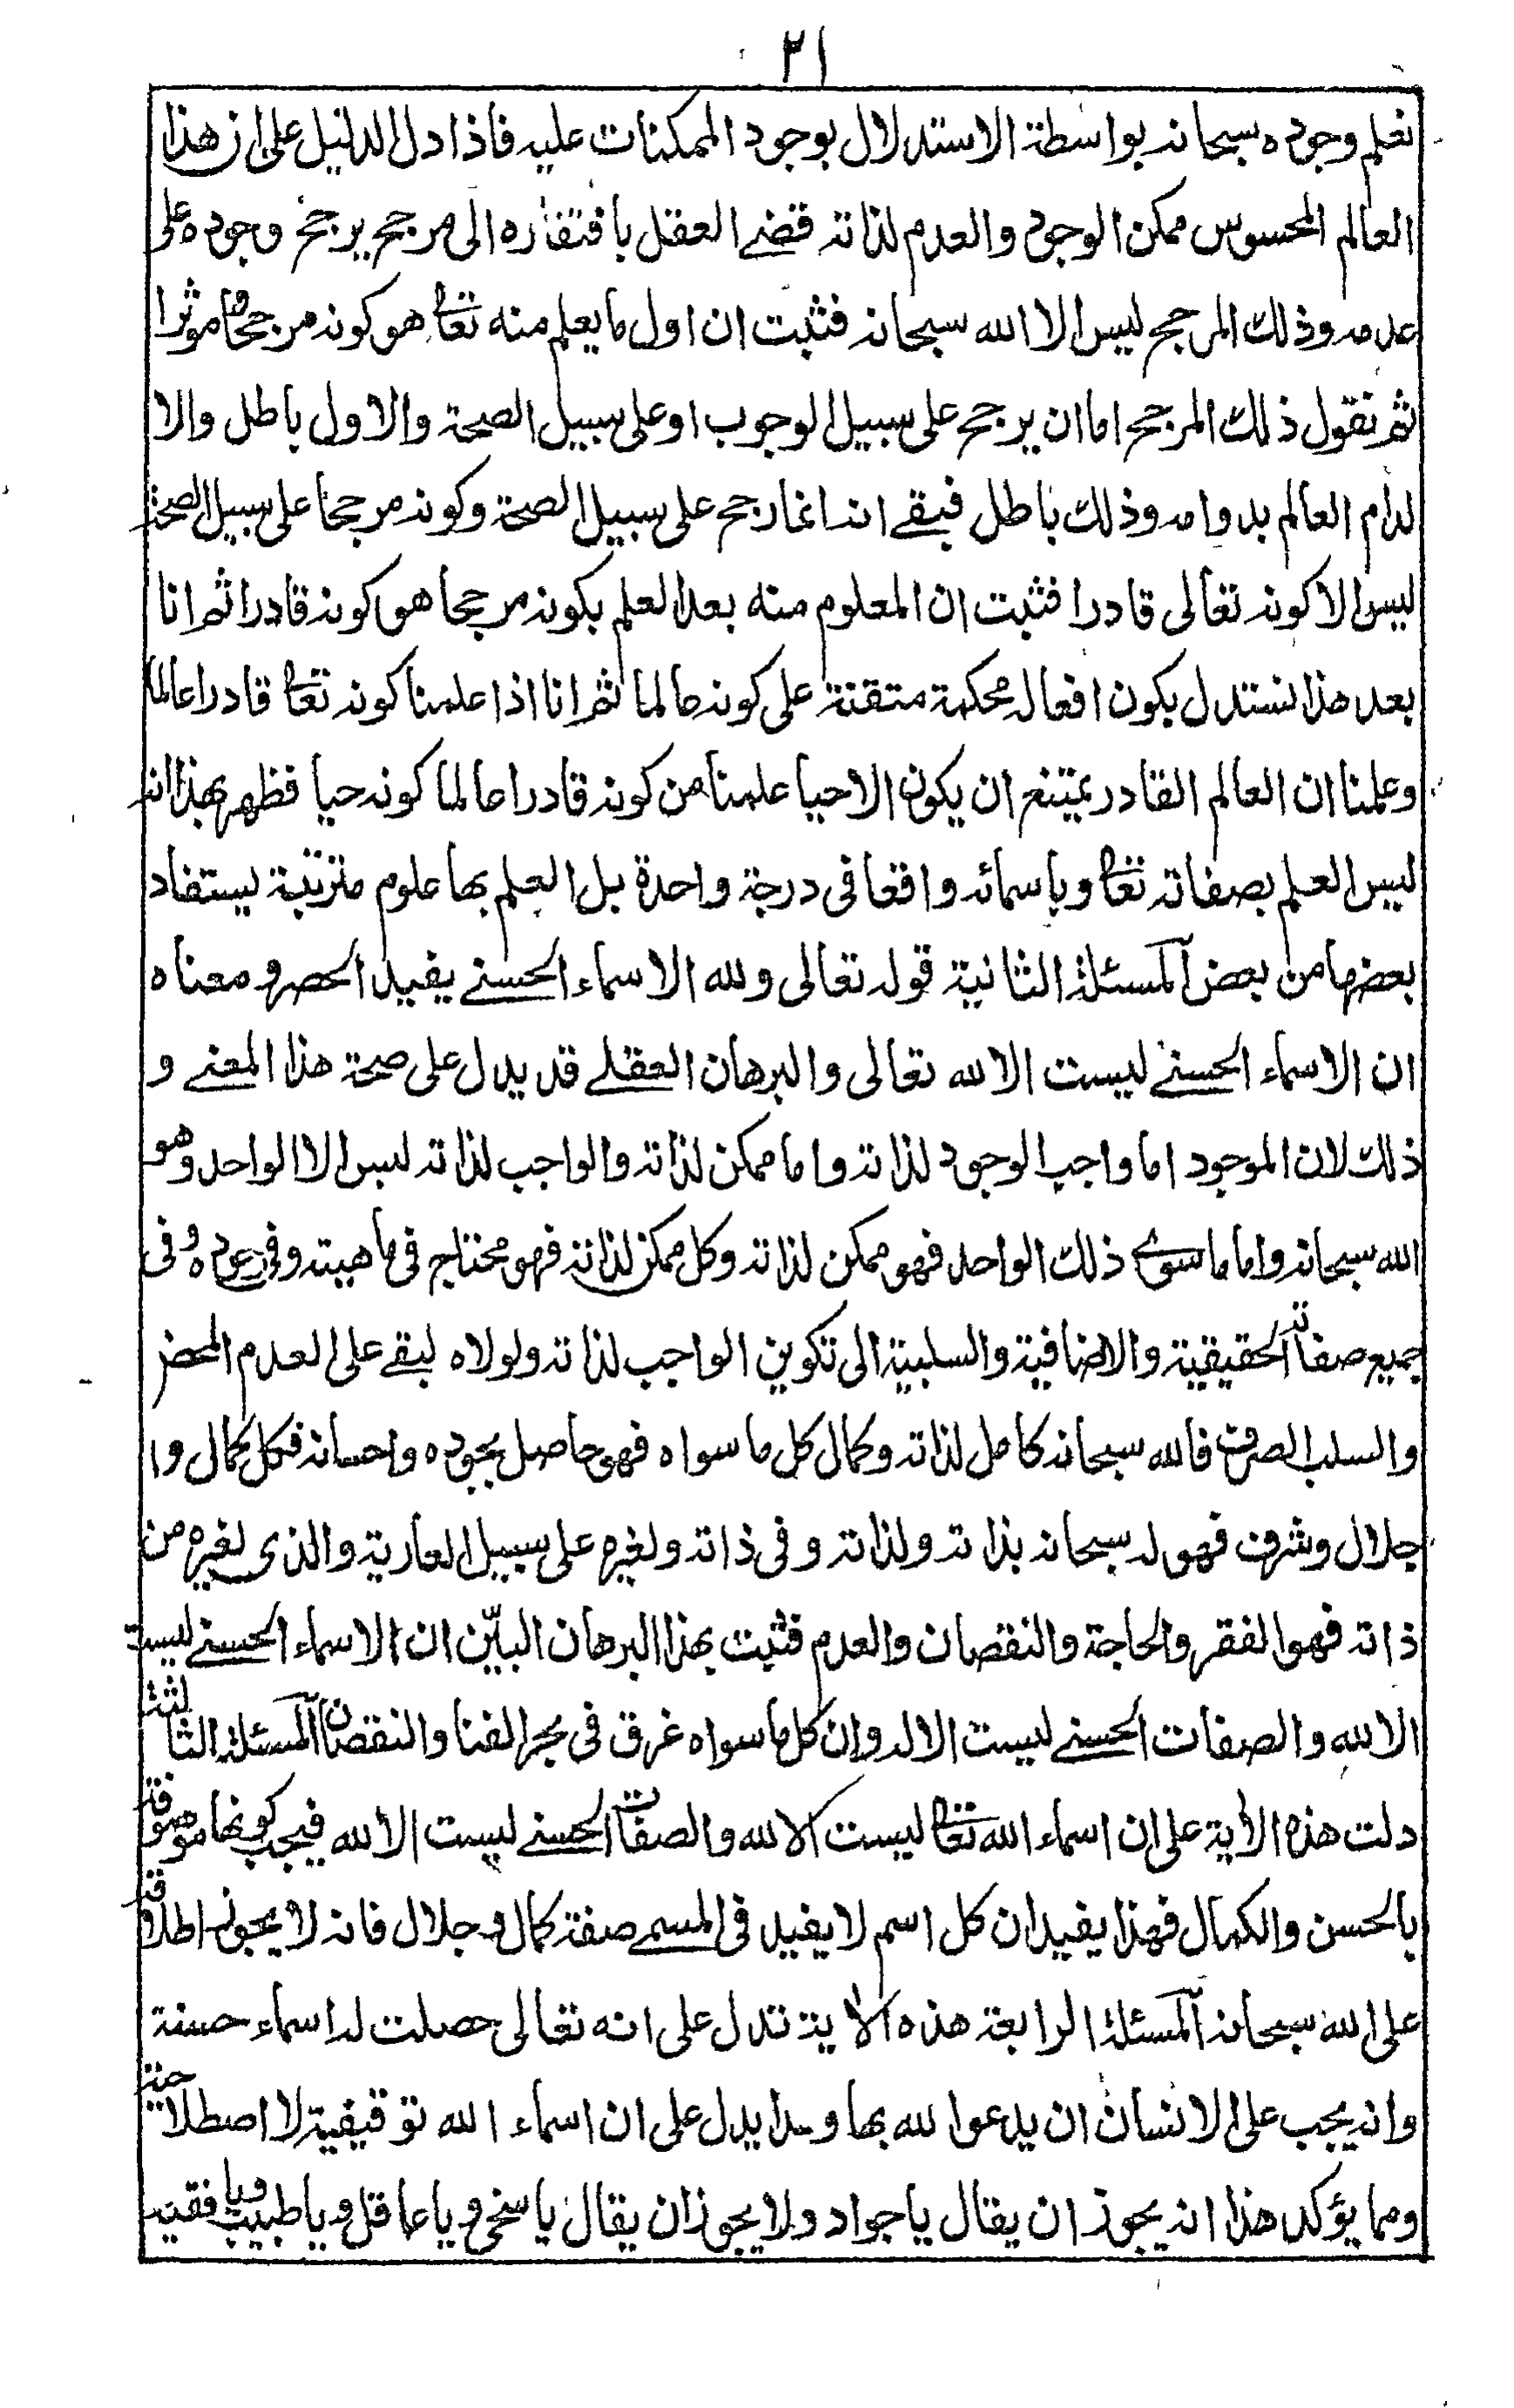 ٢١
نعلم وجوده سبحانه بواسطة الاستدلال بوجود الممكنات عليه فاذا دل الدليل على ان هذا
العالم المحسوس ممكن الوجود والعدم لذاته قضى العقل بافتقاره الى مرجح يرجح وجوده على
عدمه وذلك المرجح ليس الا الله سبحانه فثبت ان اول ما يعلم منه تعا هو كونه مرجحا و موثرا
ثم نقول ذلك المرجح اما ان يرجح على سبيل الوجوب او على سبيل الصحة والاول باطل والا
لدام العالم بدوامه وذلك باطل فبقے انه انما رجح على سبيل الصحة وكونه مرجحا على سبيل الصحة
ليس الا كونه تعالى قادرا فثبت ان المعلوم منه بعد العلم بكونه مرجحا هو كونه قادرا ثم انا
بعد هذا نستدل بكون افعاله محكمة متقنة على كونه عالما ثم انا اذا علمنا كونه تعا قادرا عالما
وعلمنا ان العالم القادر يمتنع ان يكون الا حيا علمنا من كونه قادرا عالما كونه حيا فظهر بهذا انه
ليس العلم بصفاته تعا وباسمائه واقعا فى درجة واحدة بل العلم بها علوم مترتبة يستفاد
بعضها من بعض المسئلة الثانية قوله تعالى ولله الاسماء الحسنے يفيد الحصر و معناه
ان الاسماء الحسنے ليست الا لله تعالى والبرهان العقلے قد يدل على صحة هذا المعنے و
ذلك لان الموجود اما واجب الوجود لذاته واما ممكن لذاته والواجب لذاته ليس الا الواحد وهو
الله سبحانه واما ما سوے ذلك الواحد فهو ممكن لذاته وكل ممكن لذاته فهو محتاج فى ماهيته وفى وجوده و فى
جميع صفاته الحقيقية والاضافية والسلبية الى تكوين الواجب لذاته ولولاه لبقے على العدم المحض
والسلب الصرف فالله سبحانه كامل لذاته وكمال كل ما سواه فهو حاصل بجوده واحسانه فكل كمال وا
جلال وشرف فهو له سبحانه بذاته ولذاته وفى ذاته ولغيره على سبيل العارية والذى لغيره من
ذاته فهو الفقر والحاجة والنقصان والعدم فثبت بهذا البرهان البيّن ان الاسماء الحسنے ليست
الا لله والصفات الحسنے ليست الا له وان كل ما سواه غرق فى بحر الفنا والنقصان المسئلة الثالثة
دلت هذه الأية على ان اسماء الله تعا ليست الا لله والصفات الحسنے ليست الا لله فيجب كونها موصوفة
بالحسن والكمال فهذا يفيد ان كل اسم لا يفيد فى المسمے صفة كمال و جلال فانه لا يجوز اطلاقه
على الله سبحانه المسئلة الرابعة هذه الاية تدل على انه تعالى حصلت له اسماء حسنة
وانه يجب على الانسان ان يدعوا لله بها و يدل على ان اسماء الله توقيفية لا اصطلاحية
ومما يؤكد هذا انه يجوز ان يقال يا جواد ولا يجوز ان يقال يا سخى و يا عاقل و يا طبيب و يا فقيه